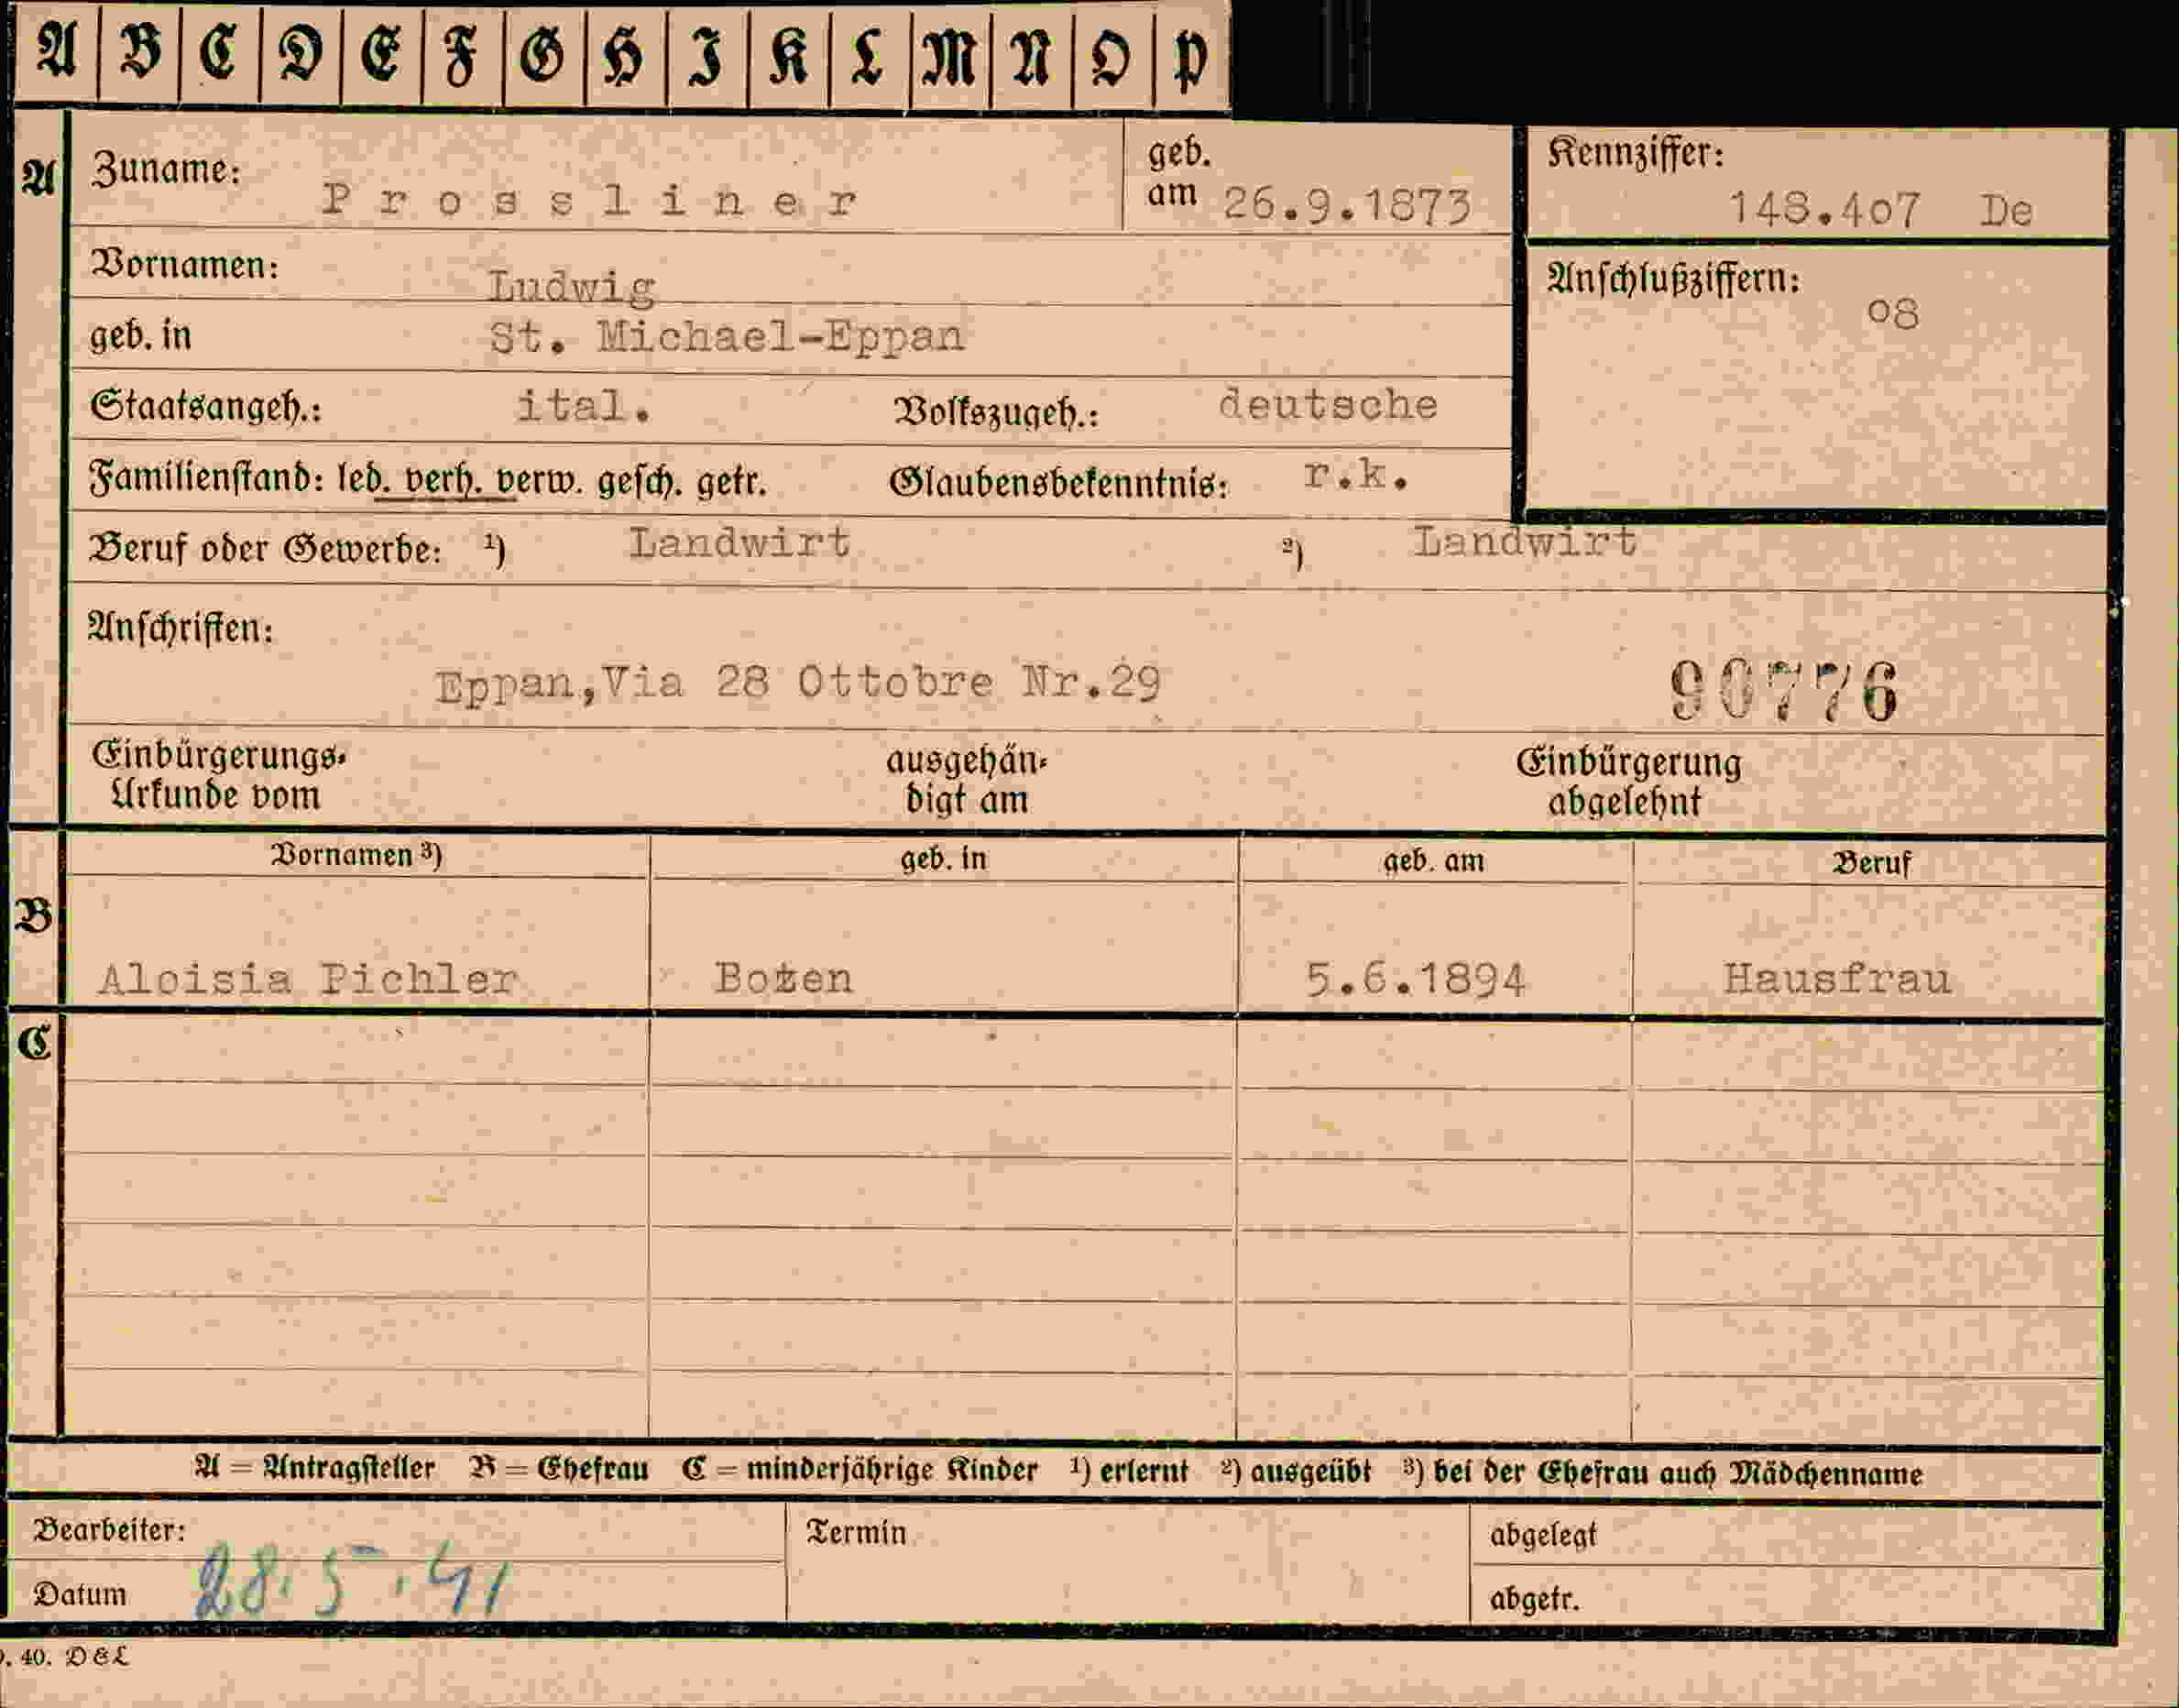 A B C D E F G H I K L M N O P
A Zuname: Prossliner geb. am 26.9.1873 Kennziffer: 148.407 De
Vornamen: Ludwig Anschlußziffern: 08
geb. in St. Michael-Eppan
Staatsangeh.: ital. Volkszugeh.: deutsche
Familienstand: led. verh. verw. gesch. getr. Glaubensbekenntnis: r.k.
Beruf oder Gewerbe: ¹) Landwirt ²) Landwirt
Anschriften:
Eppan,Via 28 Ottobre Nr.29 90776
Einbürgerungs-Urkunde vom ausgehän-digt am Einbürgerung abgelehnt
Vornamen ³) geb. in geb. am Beruf
B
Aloisia Pichler Bozen 5.6.1894 Hausfrau
C
A = Antragsteller B = Ehefrau C = minderjährige Kinder ¹) erlernt ²) ausgeübt ³) bei der Ehefrau auch Mädchenname
Bearbeiter: Termin abgelegt
Datum 28.5.41 abgetr.
. 40. D&L